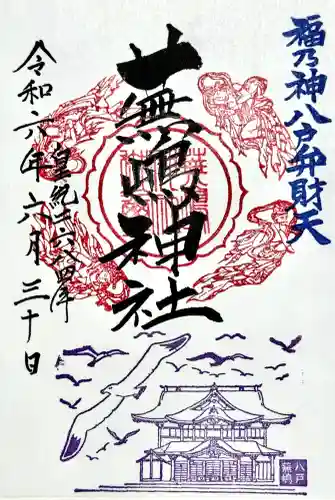 福乃神八方弁財天
蕪嶋神社
皇紀二六八四年
令和六年六月三十日
八戸
蕪嶋